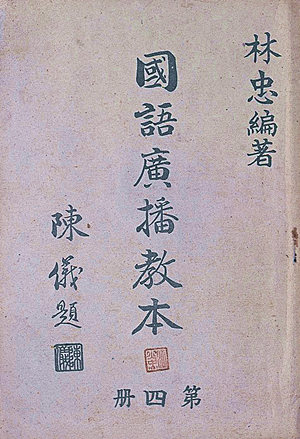 林忠編著
國語廣播教本
陳儀題
第四册